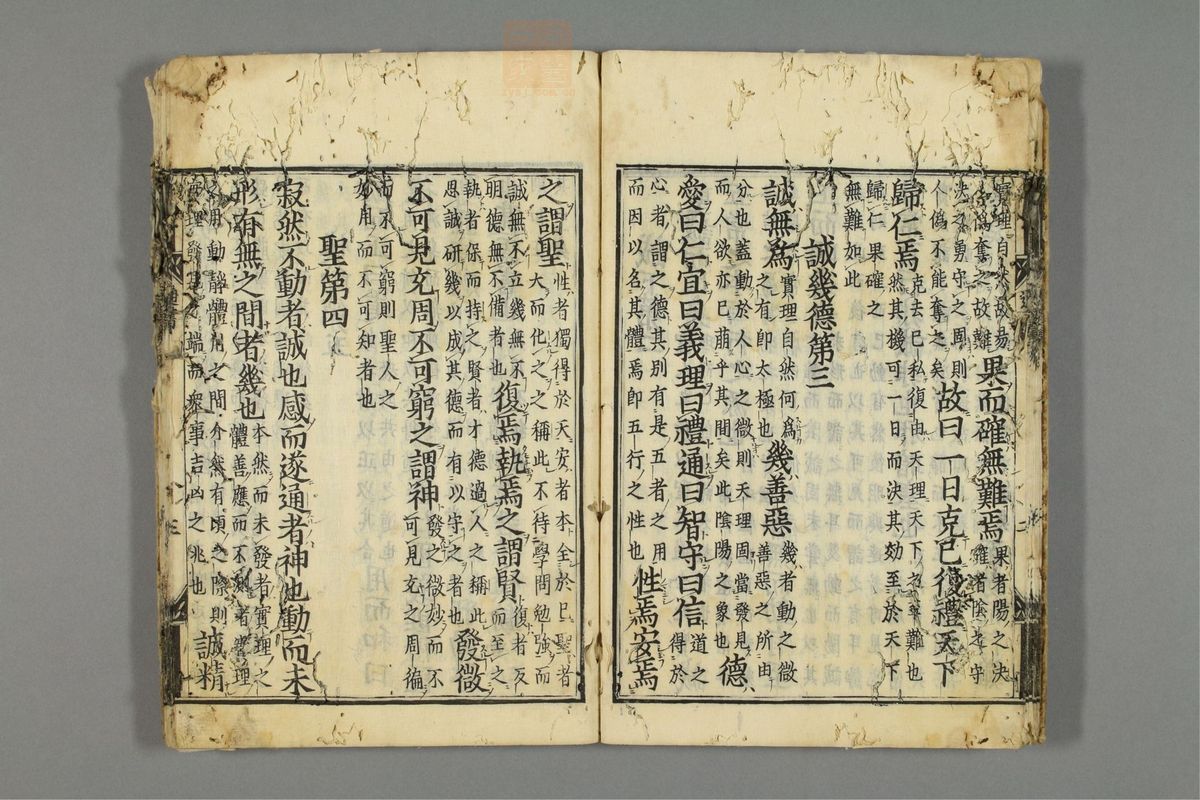 實理自然故易
人僞奪之故難
果而確無難焉
果者陽之決
確者陰之守
決之勇守之固則
人僞不能奪之矣
故曰一日克己復禮天下
歸仁焉
克去己私復由天理天下之至難也
然其機可一日而決其効至於天下
歸仁果確之
無難如此
誠幾德第三
誠無爲
實理自然何爲
之有即太極也
幾善惡
幾者動之微
善惡之所由
分也蓋動於人心之微則天理固當發見
而人欲亦已萌乎其間矣此陰陽之象也
德
愛曰仁宜曰義理曰禮通曰智守曰信
道之
得於
心者謂之德其別有是五者之用
而因以名其體焉即五行之性也
性焉安焉
之謂聖
性者獨得於天安者本全於已聖者
大而化之之稱此不待學問勉強而
誠無不立幾無不
明德無不備者也
復焉執焉之謂賢
復者反
而至之
執者保而持之賢者才德過人之稱此
思誠研幾以成其德而有以守之者也
發微
不可見充周不可窮之謂神
發之微妙而不
可見充之周徧
而不可窮則聖人之
妙用而不可知者也
聖第四
寂然不動者誠也感而遂通者神也動而未
形有無之間者幾也
本然而未發者實理之
體善應而不測者實理
之用動靜體用之間介然有頃之際則
實理發見之端而衆事吉凶之兆也
誠精